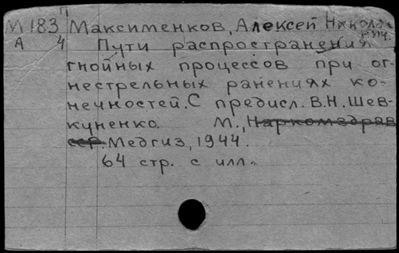 М 183 Максименков, Алексей Никола-
А 4 евич.
Пути распространения
гнойных процессов при ог-
нестрельных ранениях ко-
нечностей. С предисл. В.Н. Шев-
куненко. М., Наркомздрав
ссср. Медгиз, 1944.
64 стр. с илл.